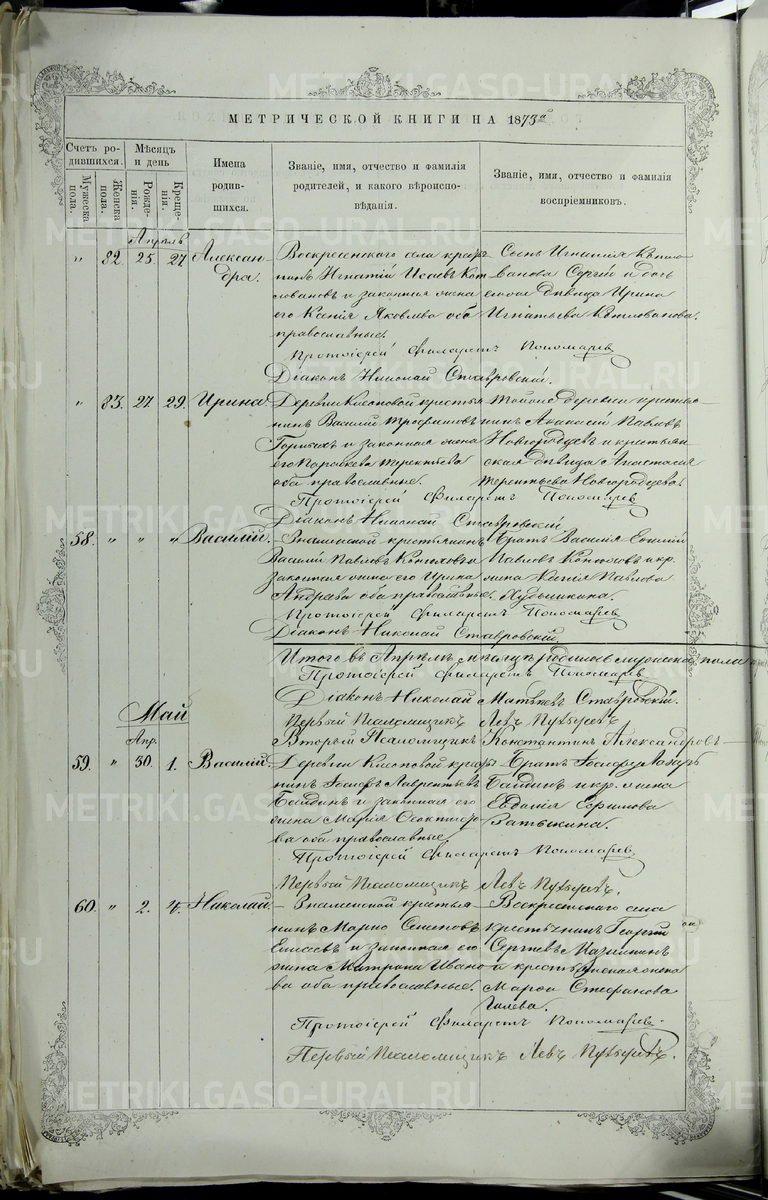 МЕТРИЧЕСКОЙ КНИГИ НА 1873й
Счетъ родившихся.
Мужеска пола.
Женска пола.
Мѣсяцъ и день
Рожденія.
Крещенія.
Имена родившихся.
Званіе, имя, отчество и фамилія родителей, и какого вѣроисповѣданія.
Званіе, имя, отчество и фамилія воспріемниковъ.
Апрѣль
" 82. 25. 27. Александра.
Воскресенскаго села крестьянинъ Игнатій Исаевъ Котловановъ и законная жена его Ксенія Яковлева оба православные.
Сынъ Игнатія Котлованова Сергій и дочь его же дѣвица Ирина Игнатьева Котлованова.
Протоіерей Филаретъ Пономаревъ
Діаконъ Николай Ставровскій.
" 83. 27. 29. Ирина.
Деревни Клоповой крестьянинъ Василій Трофимовъ и законная жена его Параскева Терентьева оба православные.
Тойже деревни крестьянинъ Аѳанасій Павловъ Новгородцевъ и крестьянская дѣвица Анастасія Терентьева Новгородцева.
Протоіерей Филаретъ Пономаревъ
Діаконъ Николай Ставровскій.
58. " " " Василій.
Знаменской крестьянинъ Василій Павловъ Конюховъ и законная жена его Ирина оба православные.
Братъ Василія Евгеній Павловъ Конюховъ и кр. жена Ксенія Павлова
Протоіерей Филаретъ Пономаревъ
Діаконъ Николай Ставровскій.
Итого въ Апрѣлѣ мѣсяцѣ родилось мужеска пола
Протоіерей Филаретъ Пономаревъ
Діаконъ Николай Матвѣевъ Ставровскій.
Первый Псаломщикъ Левъ
Вторый Псаломщикъ Константинъ Александровъ
Май
Апр.
59. " 30. 1. Василій.
Деревни Клоповой крестьянинъ Іосифъ Лаврентьевъ Байдинъ и законная жена его Марія Ѳеоктистова оба православные.
Братъ Іосифу Лазарь Байдинъ и кр. жена Евдокія Ефимова
Протоіерей Филаретъ Пономаревъ
Первый Псаломщикъ Левъ
60. " 2. 4. Николай.
Знаменской крестьянинъ Марко Семеновъ и законная его жена Матрона Иванова оба православные.
Воскресенскаго села крестьянинъ Георгій Сергѣевъ и крестьянская жена Марѳа Стефанова
Протоіерей Филаретъ Пономаревъ.
Первый Псаломщикъ Левъ
METRIKI.GASO-URAL.RU